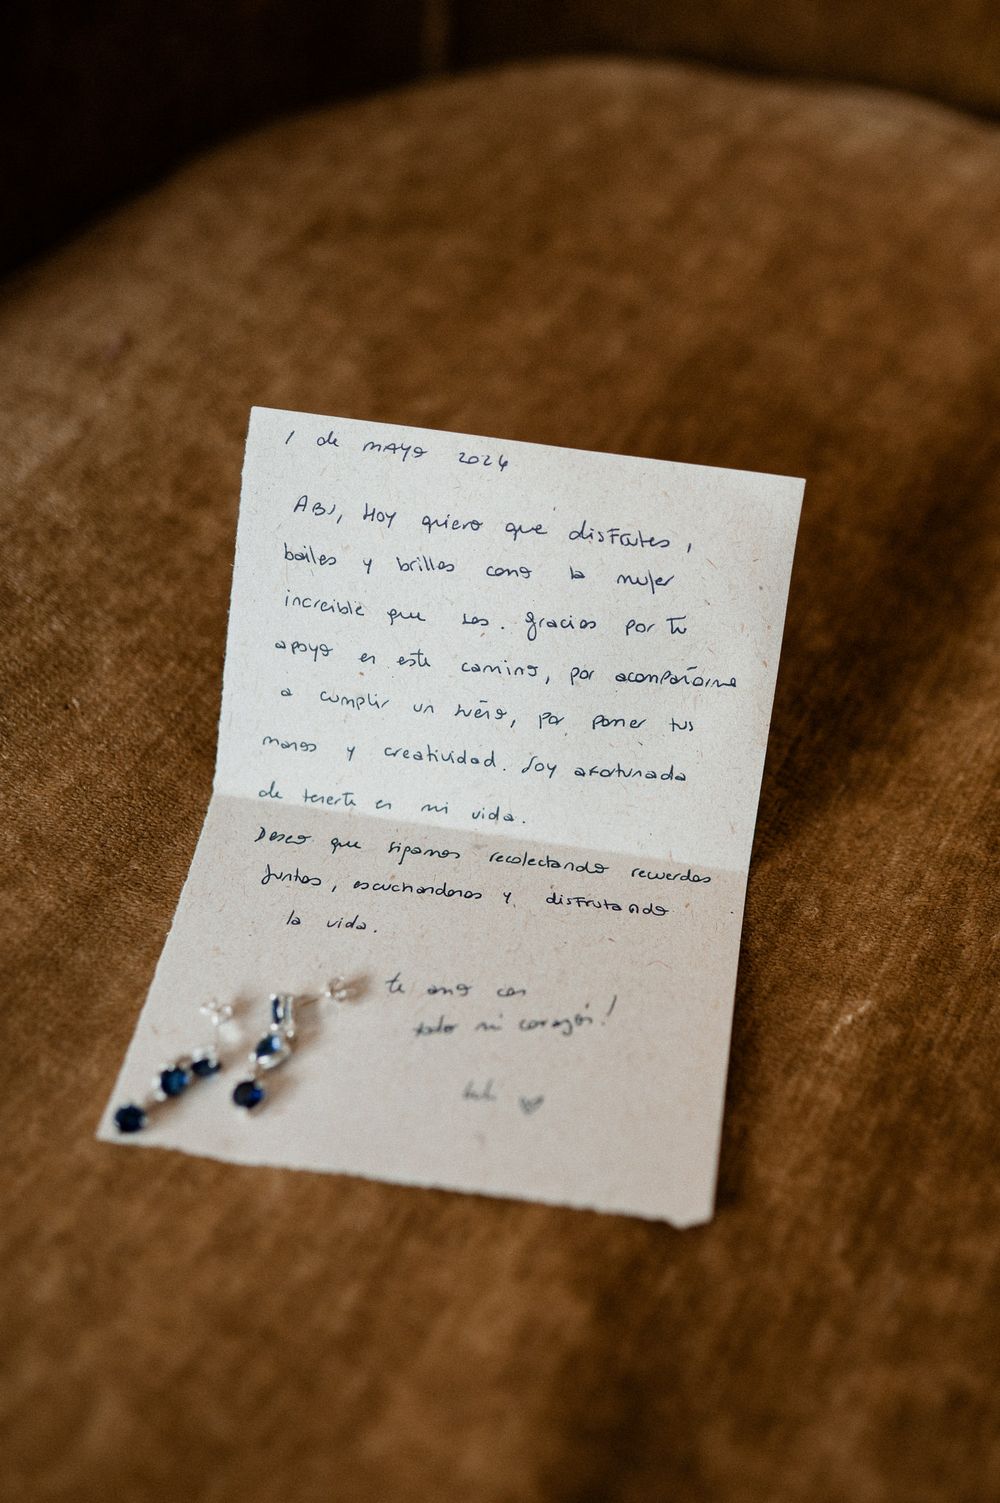 1 de mayo 2024
Abi, Hoy quiero que disfrutes,
bailes y brilles como la mujer
increible que sos. gracias por tu
apoyo en este camino, por acompañarme
a cumplir un sueño, por poner tus
manos y creatividad. Soy afortunada
de tenerte en mi vida.
Deseo que sigamos recolectando recuerdos
juntas, escuchandonos y disfrutando
la vida.
te amo con
todo mi corazón!